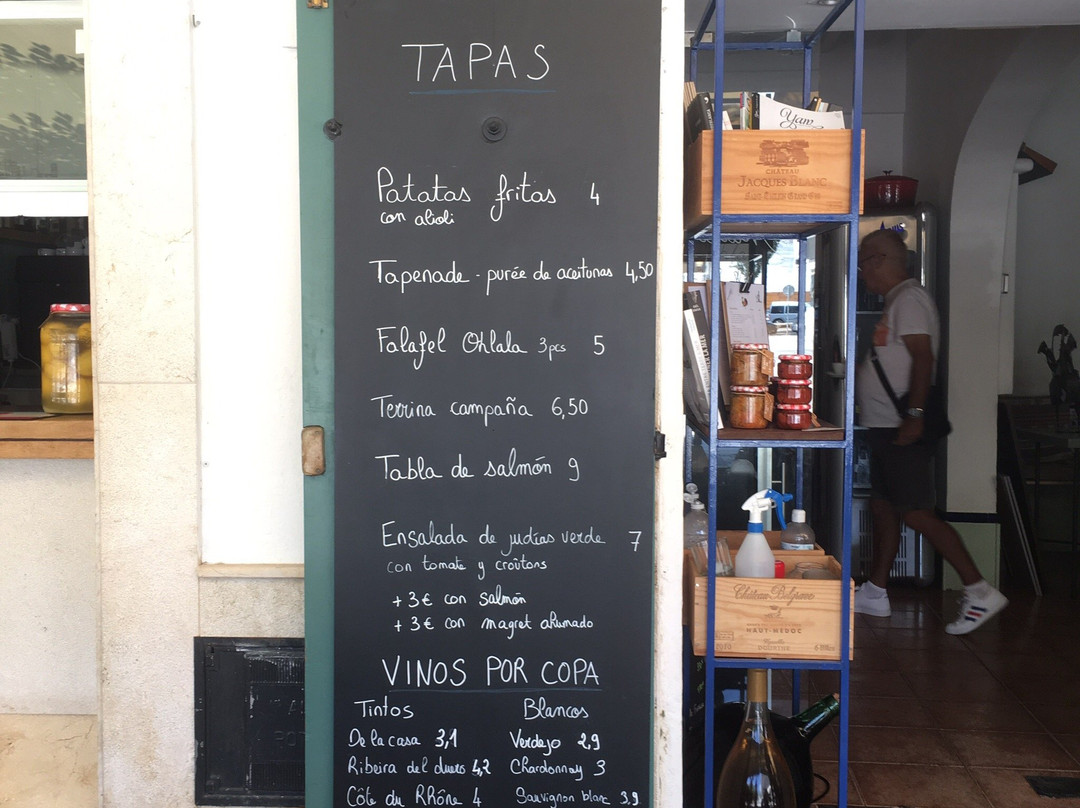 TAPAS
Patatas fritas 4
con alioli
Tapenade - purée de aceitunas 4,50
Falafel Ohlala 3pcs 5
Terrina campaña 6,50
Tabla de salmón 9
Ensalada de judías verde 7
con tomate y croûtons
+ 3€ con salmón
+ 3€ con magret ahumado
VINOS POR COPA
Tintos Blancos
De la casa 3,1 Verdejo 2,9
Ribeira del duero 4,2 Chardonnay 3
Côte du Rhône 4 Sauvignon blanc 3,9
Yam
CHÂTEAU
JACQUES BLANC
Château Belgrave
HAUT-MEDOC